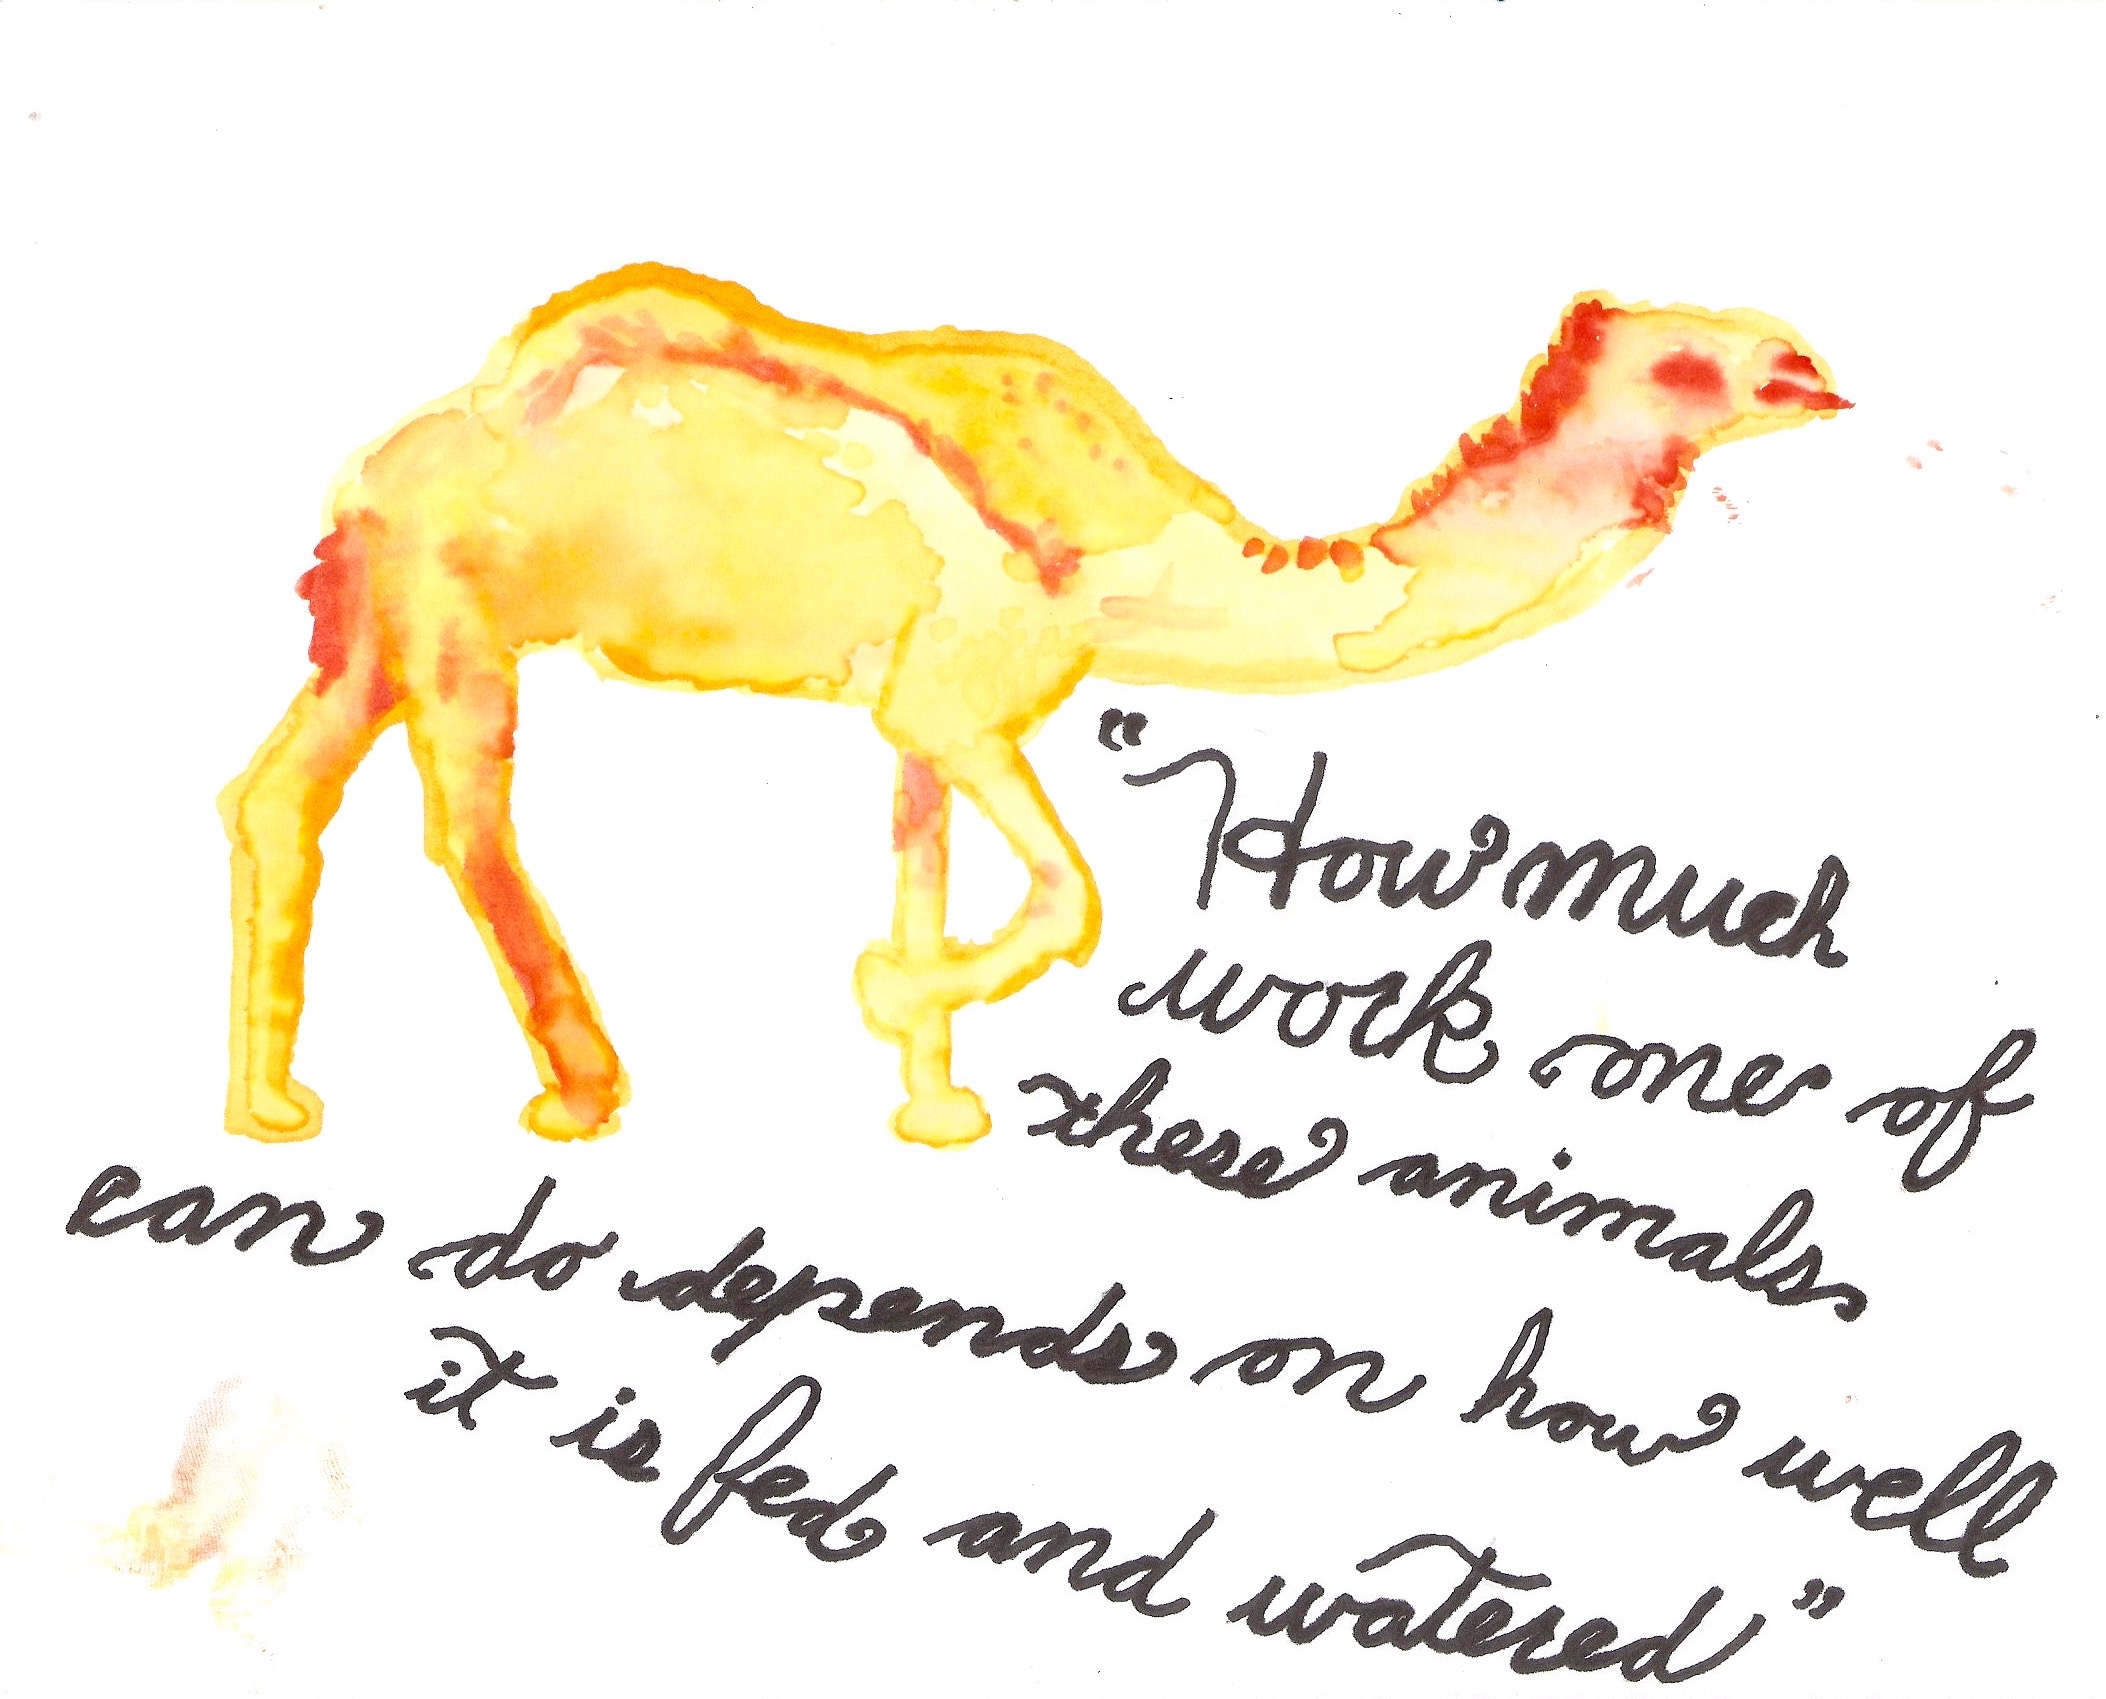 "How much
work one of
these animals
can do depends on how well
it is fed and watered"